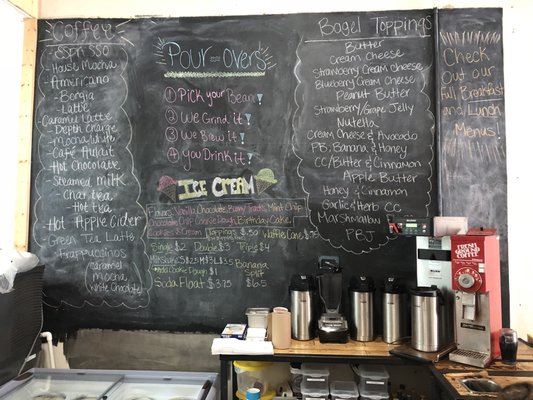 Coffee
ESPR $50
House Mocha
Americano
Borgia
Latte
Caramel Latte
Depth Charge
Mocha White
Café Aulait
Hot Chocolate
Steamed Milk
Chai tea
Hot Tea
Hot Apple Cider
Green Tea Latte
Frappuccinos
Caramel
Mocha
White Chocolate
Pour-overs
1 Pick your Bean!
2 We Grind it!
3 We Brew it!
4 You Drink it!
ICE CREAM
Flavors: Vanilla, Chocolate, Bunny Tracks, Mint Chip
Chocolate Chip Cookie Dough, Birthday Cake
Cookies & Cream Toppings $.50 Waffle Cone $.75
Single $2 Double $3 Triple $4
Milkshake M $3 L $3.5
Add Cookie Dough $1
Banana Split $6.5
Soda Float $3.75
Bagel Toppings
Butter
Cream Cheese
Strawberry Cream Cheese
Blueberry Cream Cheese
Peanut Butter
Strawberry/Grape Jelly
Nutella
Cream Cheese & Avocado
PB, Banana & Honey
CC/Butter & Cinnamon
Apple Butter
Honey & Cinnamon
Garlic & Herb CC
Marshmallow
PBJ
Check
Out our
Full Breakfast
and Lunch
Menus!
FRESH
GROUND
COFFEE